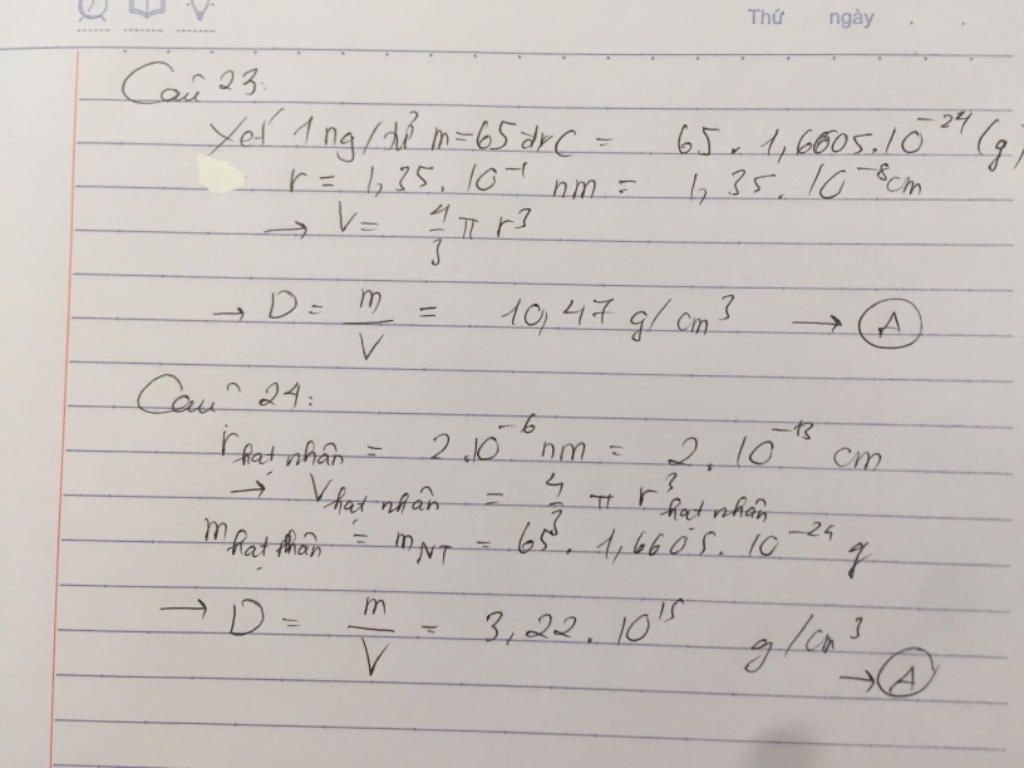 Thứ ngày . .
Câu 23:
Xét 1 ng/tử m = 65 đvC = 65 . 1,6605.10⁻²⁴ (g)
r = 1,35. 10⁻¹ nm = 1,35. 10⁻⁸ cm
→ V = 4/3 π r³
→ D = m/V = 10,47 g/cm³ → A
Câu 24:
r hạt nhân = 2.10⁻⁶ nm = 2. 10⁻¹³ cm
→ V hạt nhân = 4/3 π r³ hạt nhân
m hạt nhân = m NT = 65 . 1,6605. 10⁻²⁴ g
→ D = m/V = 3,22. 10¹⁵ g/cm³
→ A